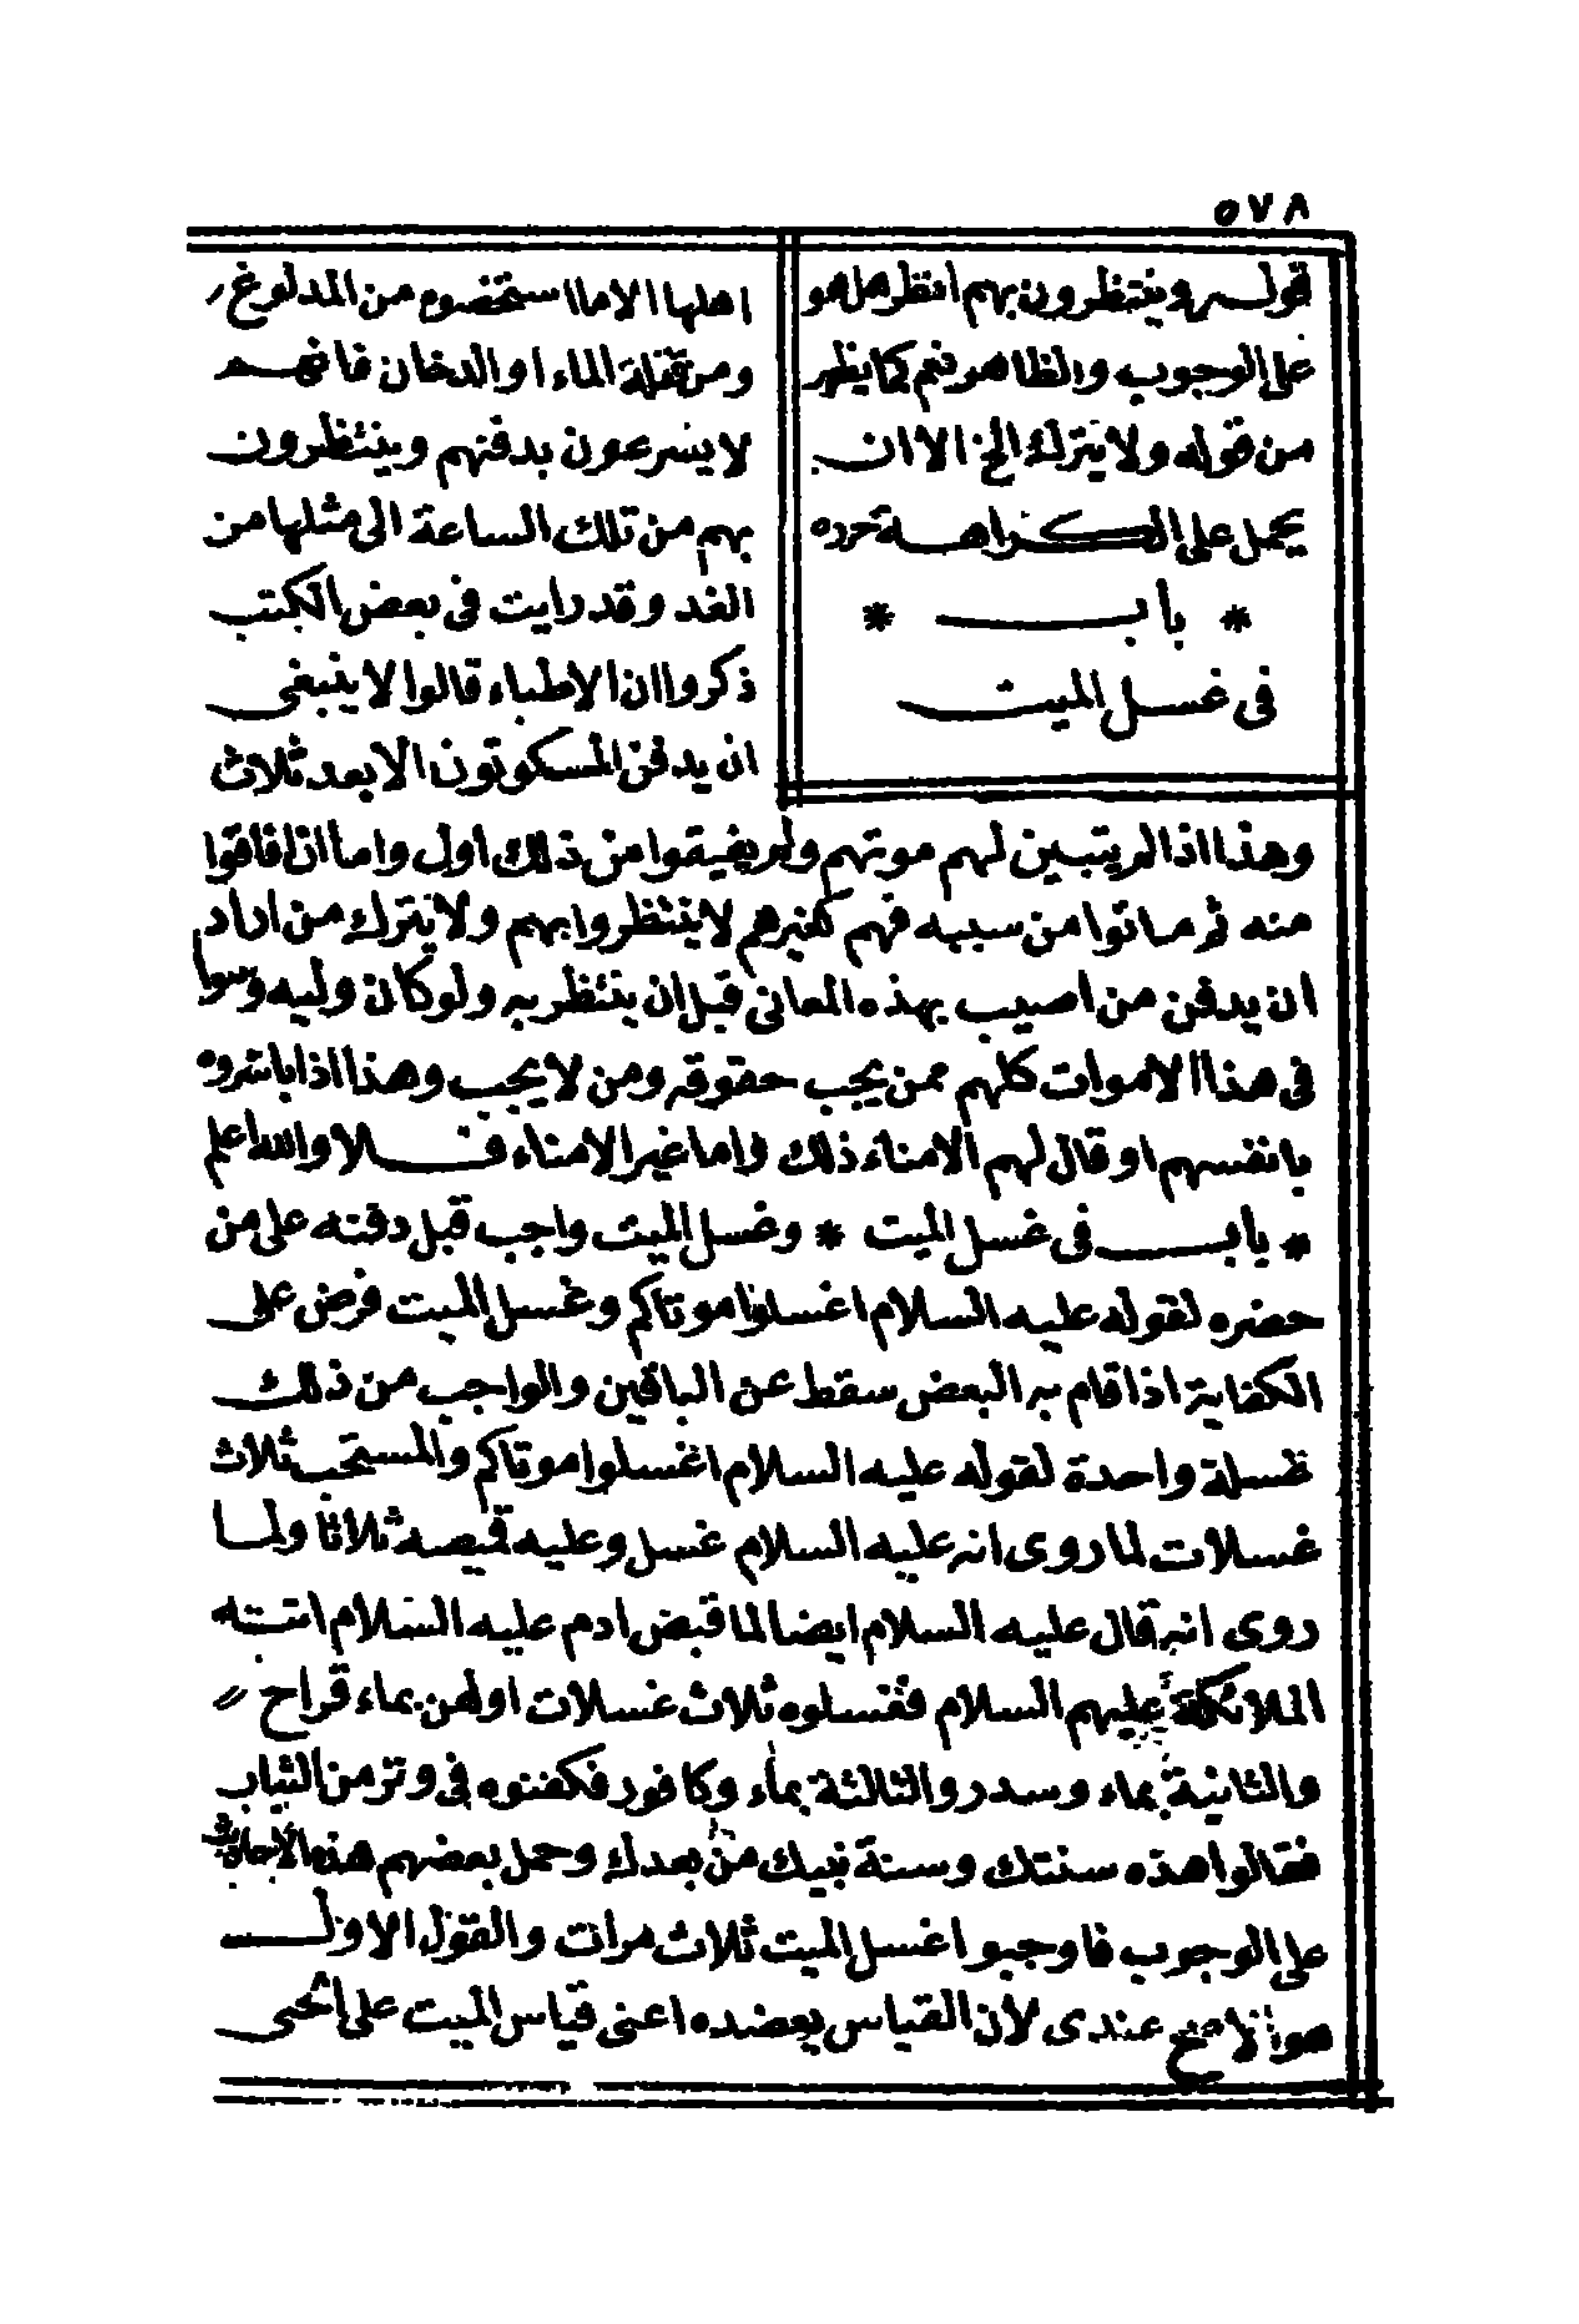 ٥٧٨
قولـه وينتظرون بهم انظر هل هو
على الوجوب والظاهر نعم كما يظهر
من قوله ولا يترك الخ الا ان
يحمل على الكراهـة حرره
* باب *
فى غسل الميت
اهلها الا ما استخصوه من المدلوغ
ومن قتلة الماء او الدخان فانهم
لا يسرعون بدفنهم وينتظرون
بهم من تلك الساعة الى مثلها من
الغد وقد رايت فى بعض الكتب
ذكروا ان الاطباء قالوا لا ينبغى
ان يدفن المسكوتون الا بعد ثلاث
وهذا اذا لم يتبين لهم موتهم ولم يفيقوا من ذلك اول واما اذا فاقوا
منه ثم ماتوا من سببه فهم كغيرهم لا ينتظروا بهم ولا يترك من اراد
ان يدفن من اصيب بهذه المعانى قبل ان ينتظر به ولو كان وليه وسوا
فى هذا الاموات كلهم ممن يجب حقوقه ومن لا يجب وهذا اذا باشروه
بانفسهم او قال لهم الامناء ذلك واما غير الامناء فـلا والله اعلم
* باب فى غسل الميت * وغسل الميت واجب قبل دفنه على من
حضره لقوله عليه السلام اغسلوا موتاكم وغسل الميت فرض على
الكفاية اذا قام به البعض سقط عن الباقين والواجب من ذلك
غسلة واحدة لقوله عليه السلام اغسلوا موتاكم والمستحب ثلاث
غسلات لما روى انه عليه السلام غسل وعليه قميصه ثلاثا ولما
روى انه قال عليه السلام ايضا لما قبض ادم عليه السلام اتته
الملائكة عليهم السلام فغسلوه ثلاث غسلات اولهن بماء قراح
والثانية بماء وسدر والثالثة بماء وكافور فكفنوه فى وتر من الثياب
فقالوا هذه سنتك وسنة بنيك من بعدك وحمل بعضهم هذه الأحاديث
على الوجوب فاوجبوا غسل الميت ثلاث مرات والقول الاول
هو الاصح عندى لأن القياس يعضده اعنى قياس الميت على الحى